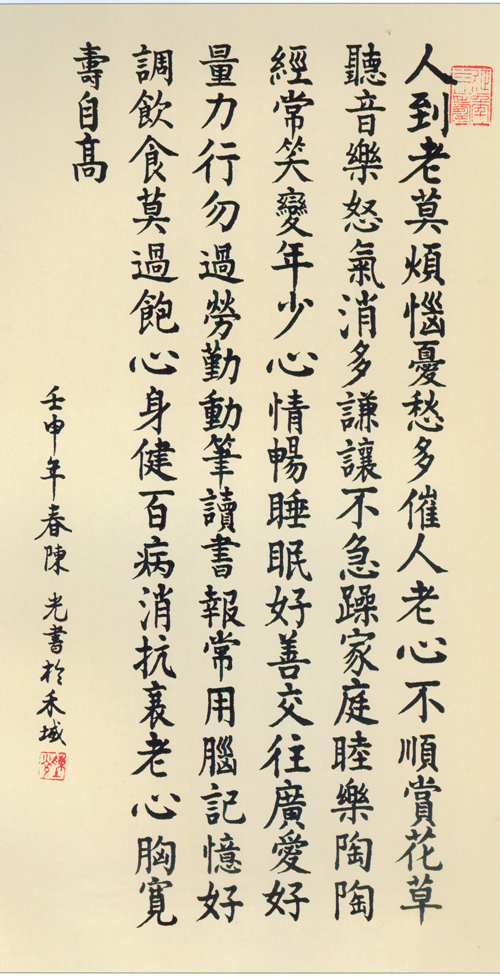 人到老莫煩惱憂愁多催人老心不順賞花草
聽音樂怒氣消多謙讓不急躁家庭睦樂陶陶
經常笑變年少心情暢睡眠好善交往廣愛好
量力行勿過勞勤動筆讀書報常用腦記憶好
調飲食莫過飽心身健百病消抗衰老心胸寬
壽自高
壬申年春陳光書於禾城